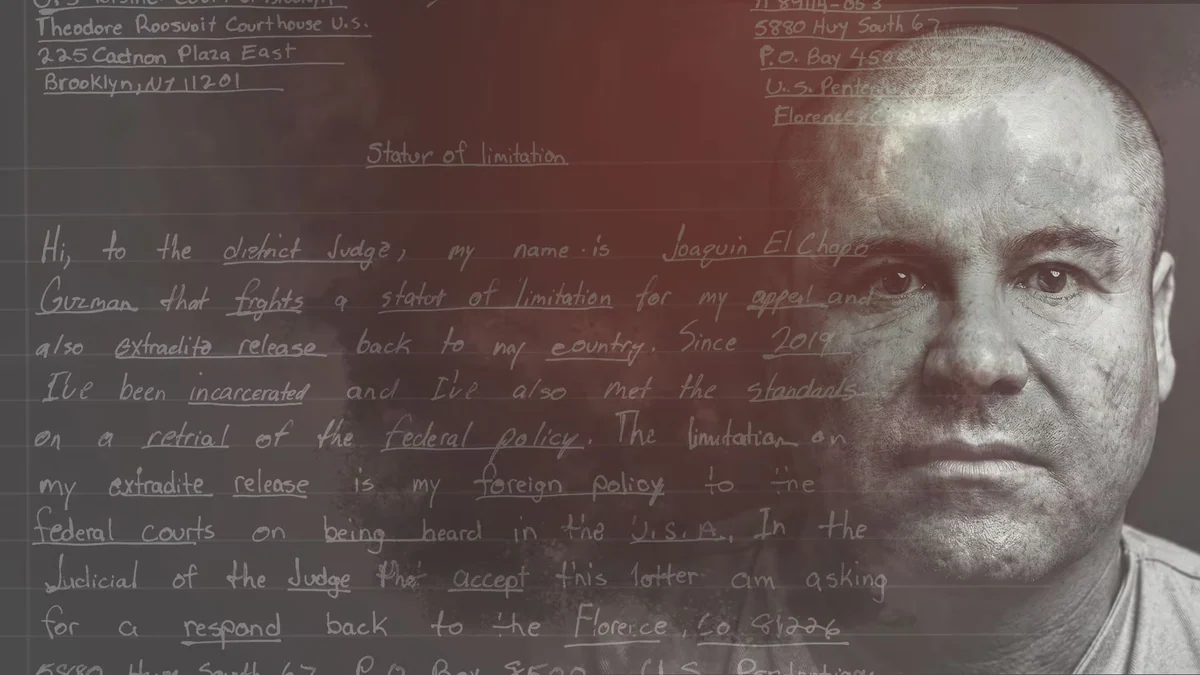 Theodore Roosvoit Courthouse U.S.
225 Cadnon Plaza East
Brooklyn, NY 11201
5880 Huy South 67
P.O. Bay
U.S.
Florence
Statur of limitation
Hi, to the district Judge, my name is Joaquin El Chapo
Guzman that frghts a statut of limitation for my appeal and
also extradite release back to my country. Since 2019
I've been incarcerated and I've also met the standards
on a retrial of the federal policy. The limitation on
my extradite release is my foreign policy to the
federal courts on being heard in the U.S.A. In the
Judicial of the Judge that accept this lotter am asking
for a respond back to the Florence, Co 81226
5880 Huy South 67 P.O. Bay 8500 U.S. Penitentiary